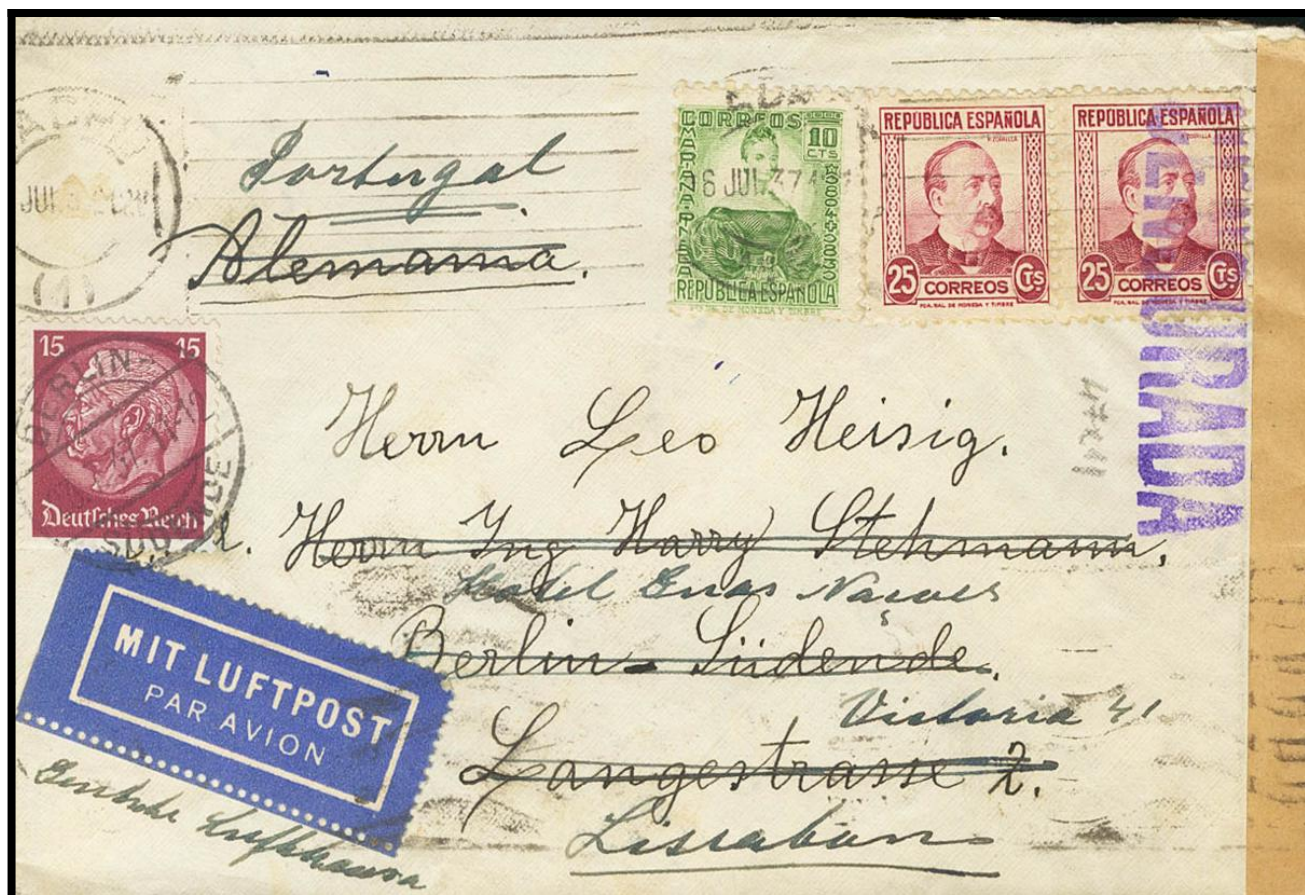 Portugal
Alemania.
CORREOS
10
CTS
MARIANA PINEDA
REPUBLICA ESPAÑOLA
16 JUL 37
REPÚBLICA ESPAÑOLA
25 CORREOS CTS
REPÚBLICA ESPAÑOLA
25 CORREOS CTS
CENSURADA
15 15
Deutsches Reich
BERLIN-
SÜDENDE
Herrn Leo Heisig.
Herrn Ing Harry Stehmann,
Hotel
Berlin-Südende.
Victoria 41
Langestrasse 2.
Lissabon
MIT LUFTPOST
PAR AVION
Deutsche Lufthansa